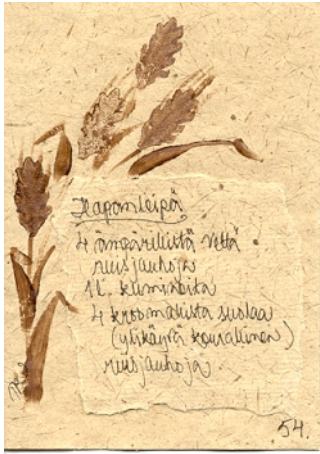 Hapanleipä
4 ämpärillistä vettä
ruisjauhoja
1 l. kuminoita
4 kourallista suolaa
(ylikäyrä kourallinen)
ruisjauhoja
54.